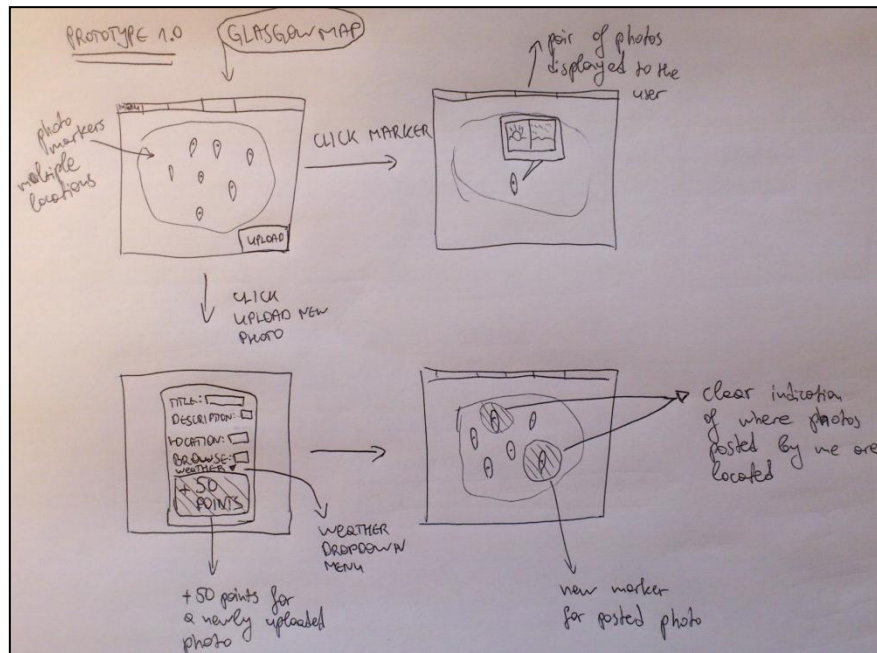 PROTOTYPE 1.0
GLASGOW MAP
MENU
photo
markers
multiple
locations
UPLOAD
CLICK MARKER
pair of photos
displayed to the
user
CLICK
UPLOAD NEW
PHOTO
TITLE:
DESCRIPTION:
LOCATION:
BROWSE:
WEATHER
+ 50
POINTS
WEATHER
DROPDOWN
MENU
+50 points for
a newly uploaded
photo
clear indication
of where photos
posted by me are
located
new marker
for posted photo